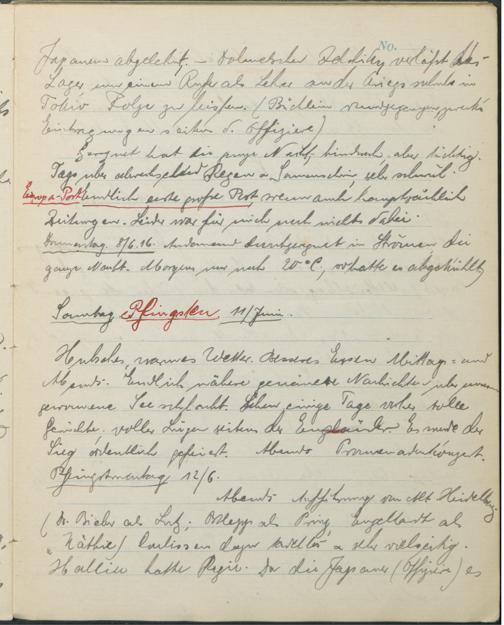 No.
Japanern abgelehnt. – Dolmetscher verläßt das
Lager um einem Rufe als Lehrer an der Kriegsschule in
Tokio Folge zu leisten. (
Eintragungen seitens d. Offiziere)
Geregnet hat die ganze Nacht hindurch, aber tüchtig.
Tags über abwechselnd Regen u. Sonnenschein, sehr schwül.
Europa-Post endlich erste große Post wenn auch hauptsächlich
Zeitungen. Leider war für mich noch nichts dabei.
Donnerstag 8/6.16. Andauernd durchgeregnet in Strömen die
ganze Nacht. Morgens nur noch 20°C, so hatte es abgekühlt.
Sonntag Pfingsten 11/Juni.
Hübsches, warmes Wetter. Besseres Essen Mittag- und
Abends. Endlich nähere genauere Nachrichten über unsere
gewonnene Seeschlacht. Schon einige Tage vorher tolle
Gerüchte voller Lügen seitens der Engländer. Es wurde der
Sieg ordentlich gefeiert. Abends Promenadenkonzert.
Pfingstmontag 12/6.
Abends Aufführung von Alt Heidelberg
(Dr. Bieber als Lutz; als Prinz, Engelhardt als
"Käthie) Coulissen dazu u. sehr vielseitig.
hatte Regie. Da die Japaner (Offiziere) es